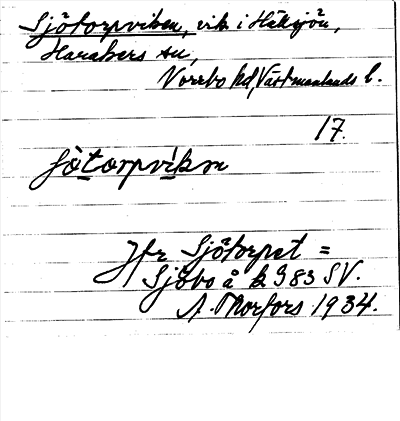 Sjötorpviken, vik i Hällsjön,
Harakers sn,
Norrbo hd, Västmanlands l.
17.
ʃötorpvikɐn
Jfr Sjötorpet =
Sjöbo å k 983 SV.
A. Thorfors 1934.